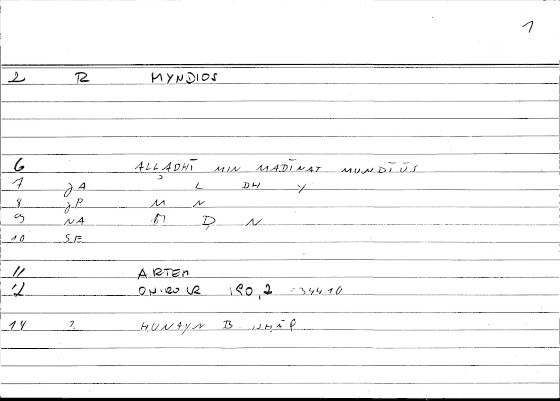 1
2 R MYNDIOS
6 ALLADHĪ MIN MADĪNAT MUNDIŪS
7 JA L DH Y
8 JP M N
9 NA M D N
10 SE
11 ARTEM
12 ONIROCR 190,2 34410
14 ? HUNAYN B. ISHĀQ